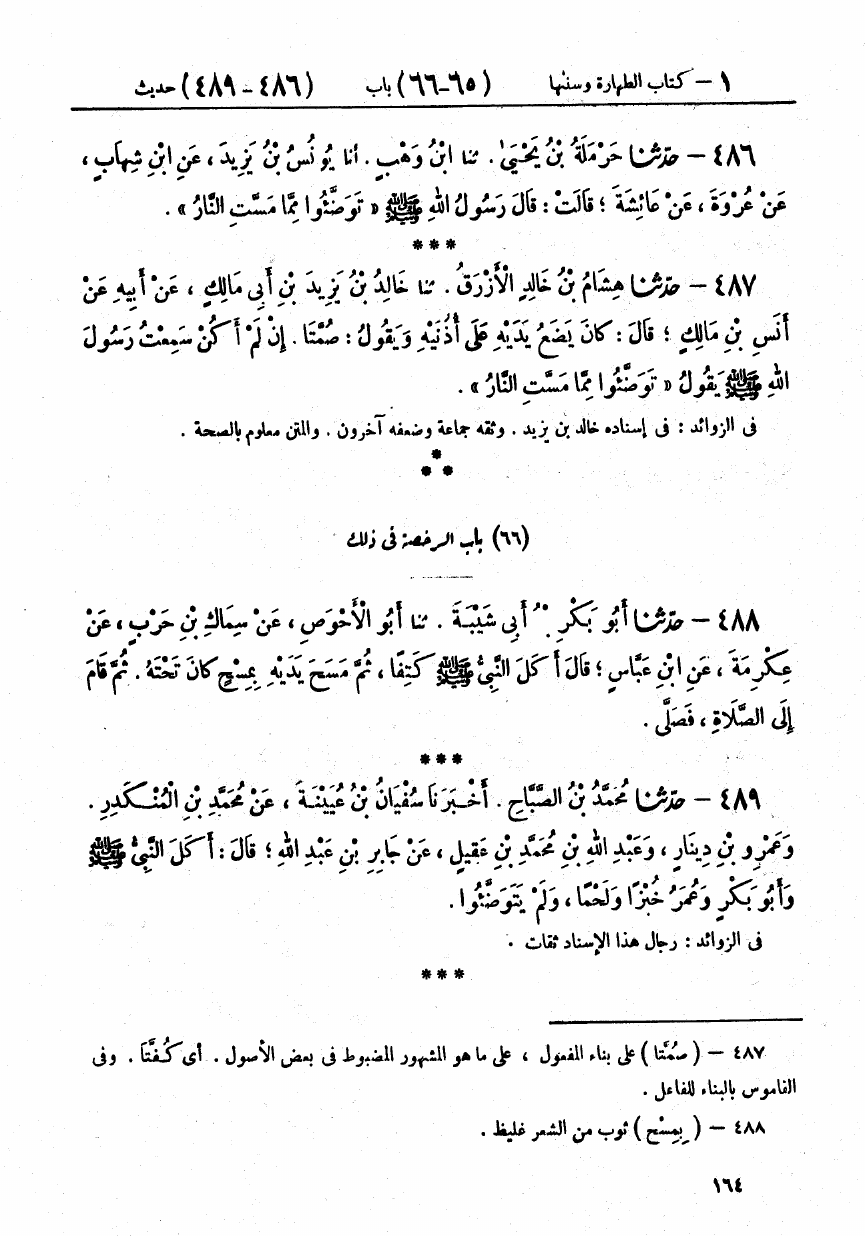 ١ – كتاب الطهارة وسننها (٦٥-٦٦) باب (٤٨٦ – ٤٨٩) حديث
٤٨٦ – حدّثنا حَرْمَلَةُ بْنُ يَحْيَىٰ . ثنا ابْنُ وَهْبٍ . أنا يُونُسُ بْنُ يَزِيدَ ، عَنِ ابْنِ شِهَابٍ ،
عَنْ عُرْوَةَ ، عَنْ عَائِشَةَ ؛ قَالَتْ : قَالَ رَسُولُ اللهِ ﷺ « تَوَضَّئُوا مِمَّا مَسَّتِ النَّارُ » .
***
٤٨٧ – حدّثنا هِشَامُ بْنُ خَالِدٍ الْأَزْرَقُ . ثنا خَالِدُ بْنُ يَزِيدَ بْنِ أَبِي مَالِكٍ ، عَنْ أَبِيهِ عَنْ
أَنَسِ بْنِ مَالِكٍ ؛ قَالَ : كَانَ يَضَعُ يَدَيْهِ عَلَى أُذُنَيْهِ وَيَقُولُ : صُمَّتَا . إِنْ لَمْ أَكُنْ سَمِعْتُ رَسُولَ
اللهِ ﷺ يَقُولُ « تَوَضَّئُوا مِمَّا مَسَّتِ النَّارُ » .
فى الزوائد : فى إسناده خالد بن يزيد . وثقه جماعة وضعفه آخرون . والمتن معلوم بالصحة .
*
* *
(٦٦) باب الرخصة فى ذلك
٤٨٨ – حدّثنا أَبُو بَكْرِ بْنُ أَبِي شَيْبَةَ . ثنا أَبُو الْأَحْوَصِ ، عَنْ سِمَاكِ بْنِ حَرْبٍ ، عَنْ
عِكْرِمَةَ ، عَنِ ابْنِ عَبَّاسٍ ؛ قَالَ أَكَلَ النَّبِيُّ ﷺ كَتِفًا ، ثُمَّ مَسَحَ يَدَيْهِ بِمِسْحٍ كَانَ تَحْتَهُ . ثُمَّ قَامَ
إِلَى الصَّلَاةِ ، فَصَلَّى .
***
٤٨٩ – حدّثنا مُحَمَّدُ بْنُ الصَّبَّاحِ . أَخْبَرَنَا سُفْيَانُ بْنُ عُيَيْنَةَ ، عَنْ مُحَمَّدِ بْنِ الْمُنْكَدِرِ .
وَعَمْرِو بْنِ دِينَارٍ ، وَعَبْدِ اللهِ بْنِ مُحَمَّدِ بْنِ عَقِيلٍ ، عَنْ جَابِرِ بْنِ عَبْدِ اللهِ ؛ قَالَ : أَكَلَ النَّبِيُّ ﷺ
وَأَبُو بَكْرٍ وَعُمَرُ خُبْزًا وَلَحْمًا ، وَلَمْ يَتَوَضَّئُوا .
فى الزوائد : رجال هذا الإسناد ثقات .
***
٤٨٧ – ( صُمَّتا ) على بناء المفعول ، على ما هو المشهور المضبوط فى بعض الأصول . أى كُفَّتَا . وفى
القاموس بالبناء للفاعل .
٤٨٨ – ( بِمِسْح ) ثوب من الشعر غليظ .
١٦٤